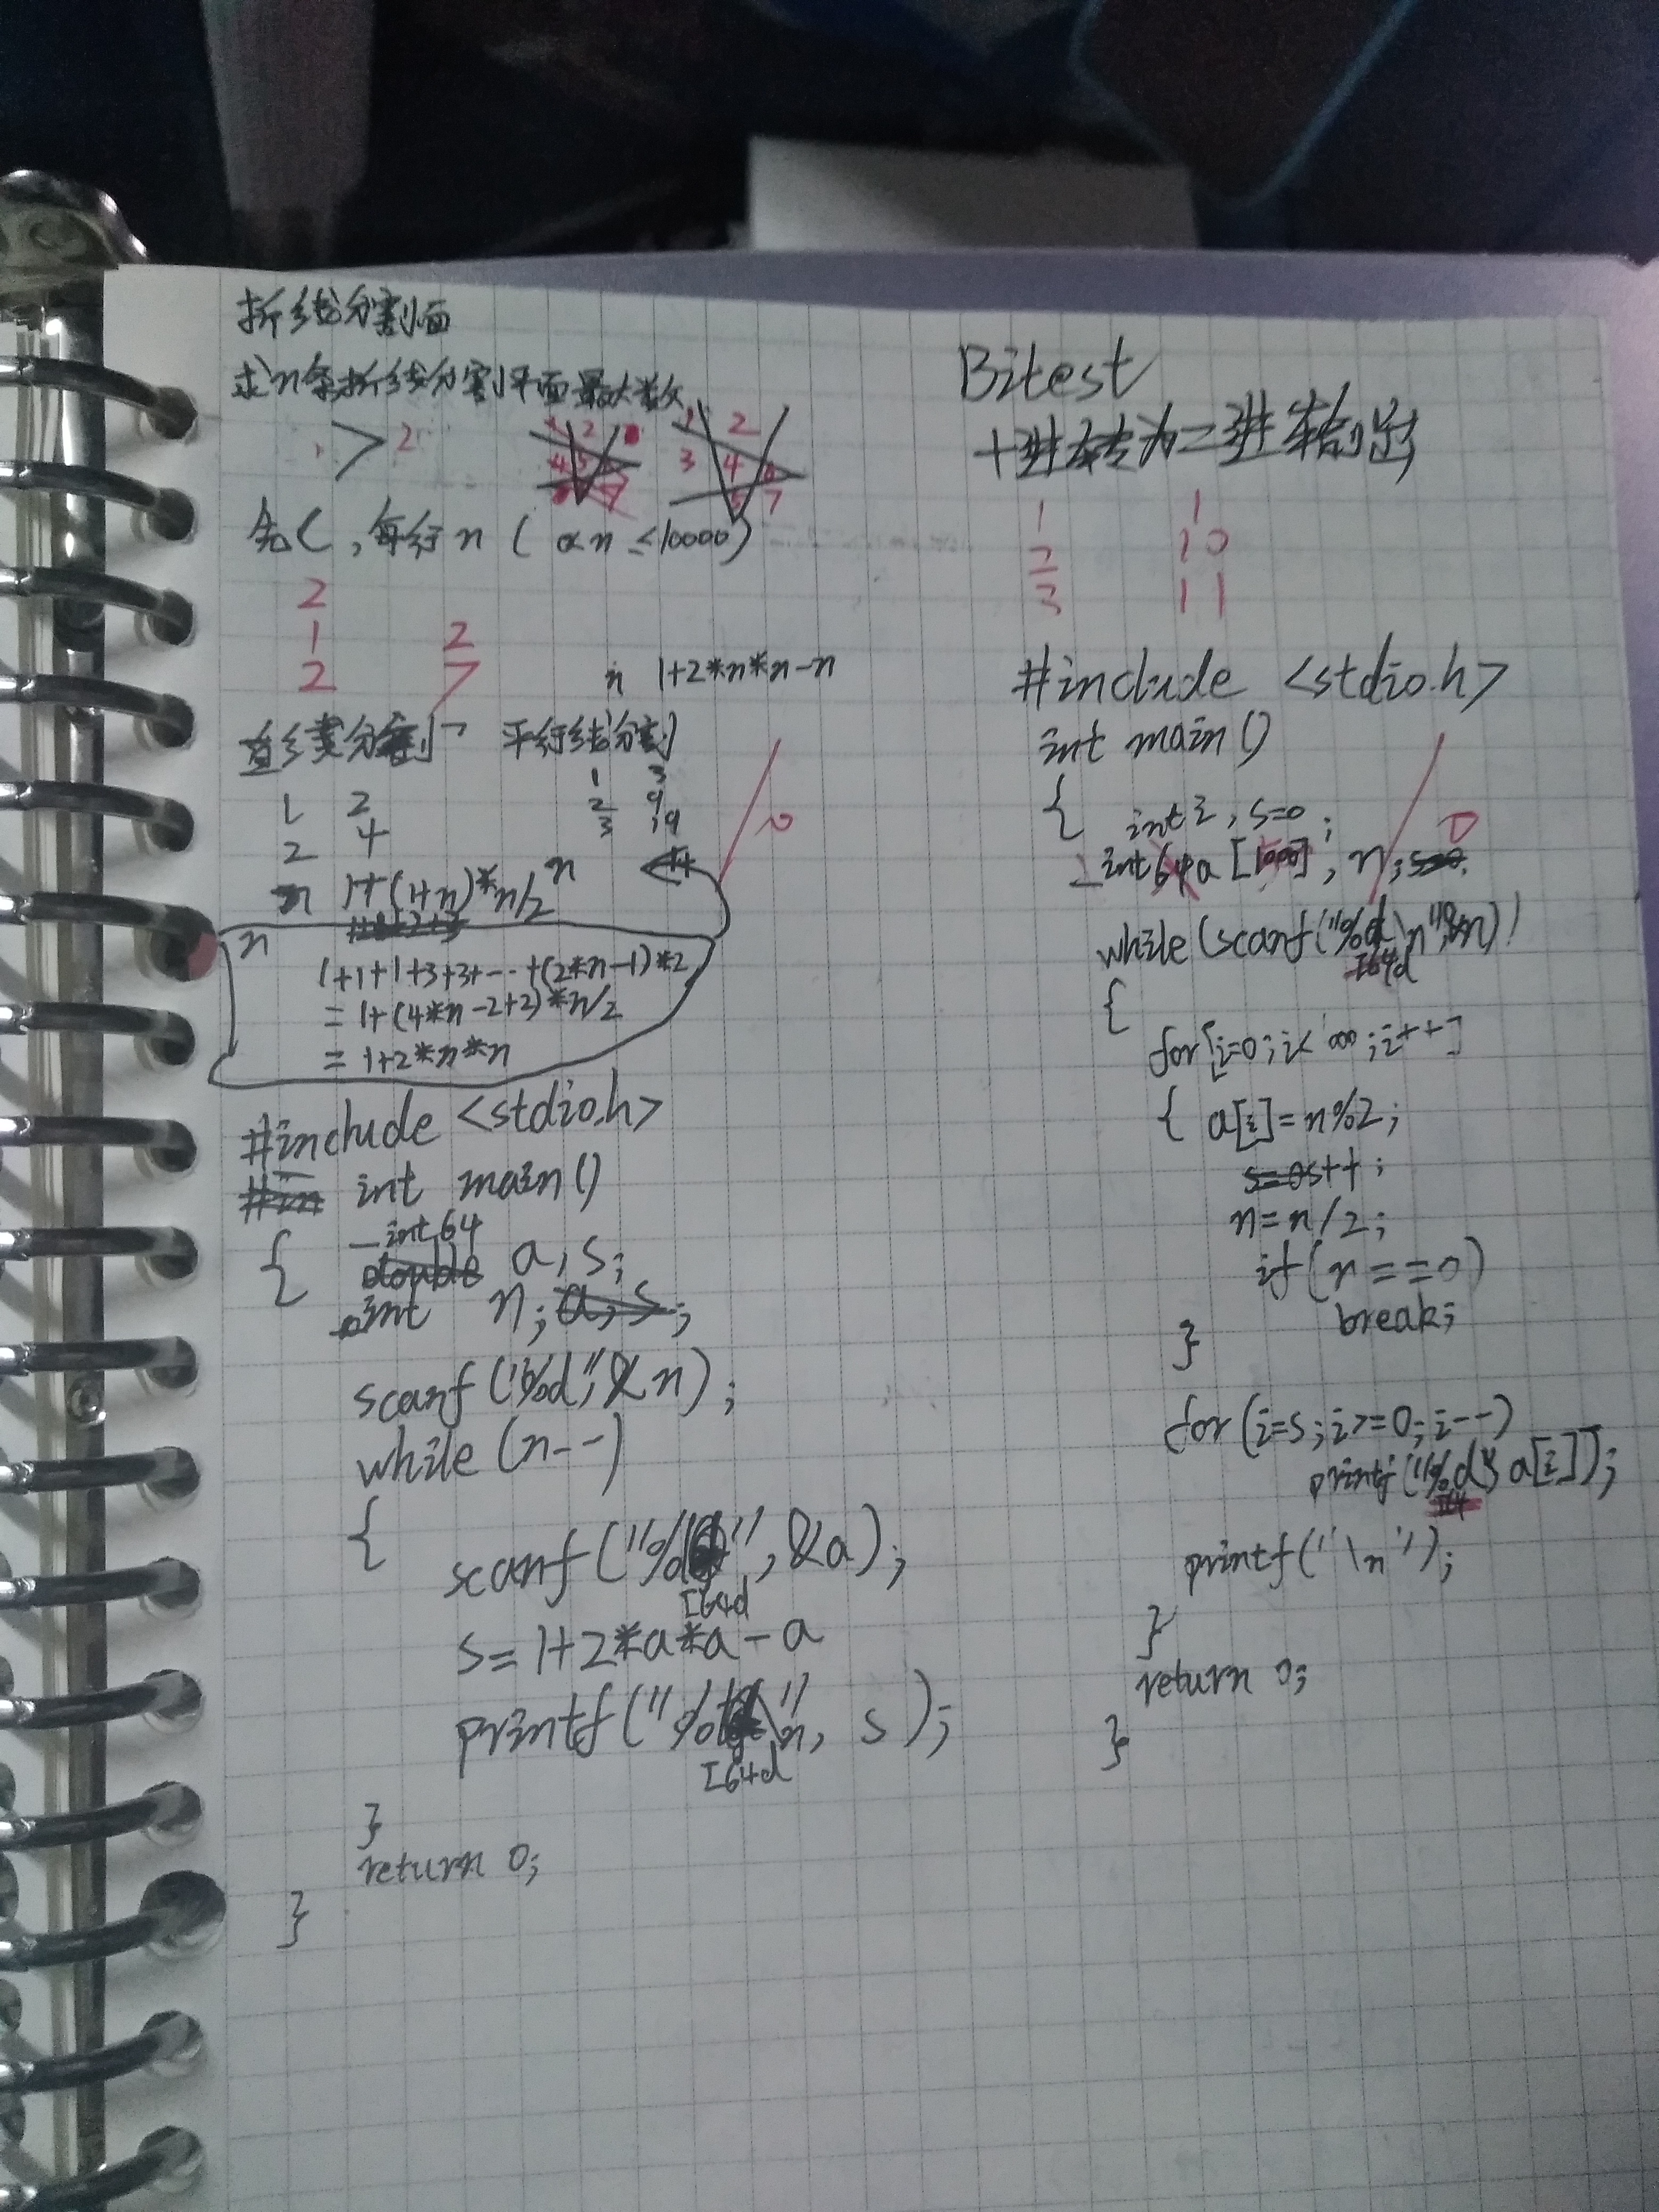 折线分割面
求n条折线分割平面最大数
> 2
1 2
3 4 6
5 7
先C,每行n(0<n≤10000)
2
1 2
2 7
n 1+2*n*n-n
直线分割 平行线分割
1 2
2 4
n 1+(1+n)*n/2
1 3
2 9
3 19
n
n
1+1+1+3+3+…+(2*n-1)*2
=1+(4*n-2+2)*n/2
=1+2*n*n
#include <stdio.h>
int main()
{ _int64 a,s;
int n;
scanf("%d",&n);
while(n--)
{
scanf("%I64d",&a);
s=1+2*a*a-a
printf("%I64d\n",s);
}
return 0;
}
Bitest
十进转为二进制输出
1 1
2 10
3 11
#include <stdio.h>
int main()
{ int i,s=0;
_int64a[1000],n;
while(scanf("%I64d\n",&n))
{
for[i=0;i<1000;i++]
{ a[i]=n%2;
s++;
n=n/2;
if(n==0)
break;
}
for(i=s;i>=0;i--)
printf("%d",a[i]);
printf("\n");
}
return 0;
}